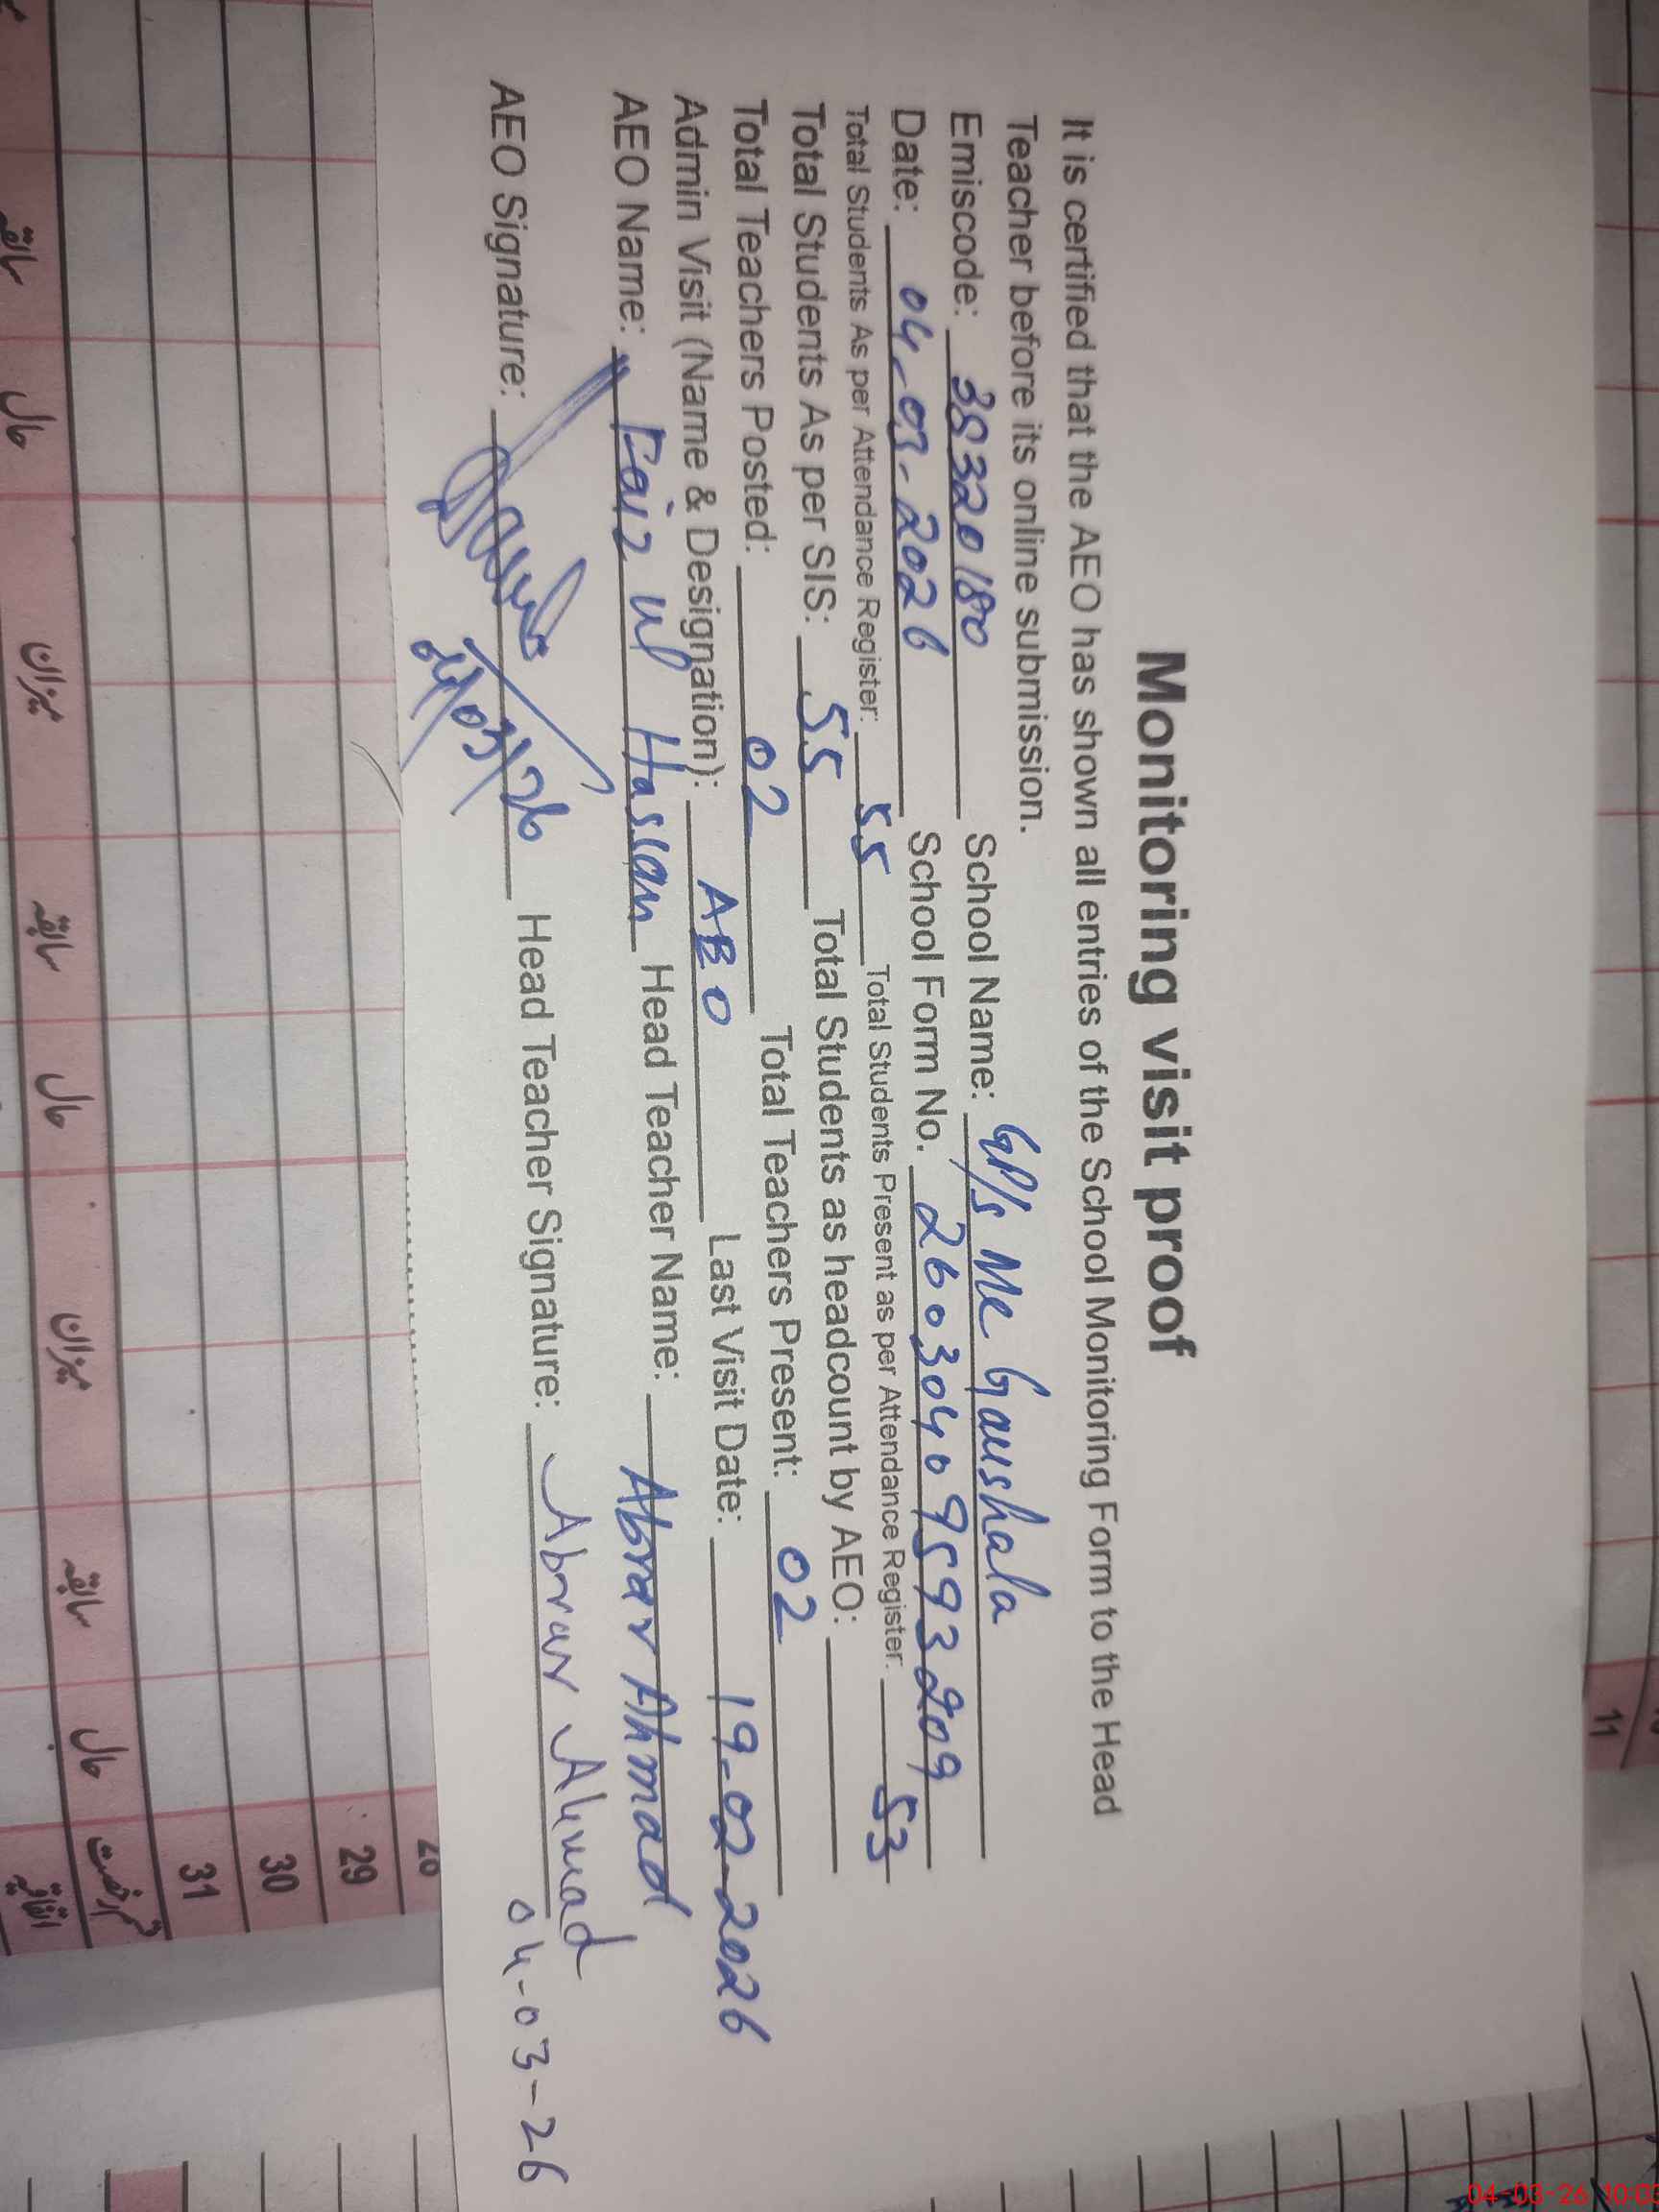 Monitoring visit proof
It is certified that the AEO has shown all entries of the School Monitoring Form to the Head
Teacher before its online submission.
Emiscode: 38320180 School Name: GP/s Mc Gaushala
Date: 04-03-2026 School Form No. 26030409593209
Total Students As per Attendance Register: 55 Total Students Present as per Attendance Register: 53
Total Students As per SIS: 55 Total Students as headcount by AEO:
Total Teachers Posted: 02 Total Teachers Present: 02
Admin Visit (Name & Designation): AEO Last Visit Date: 19-02-2026
AEO Name: Faiz ul Hassan Head Teacher Name: Abrar Ahmad
AEO Signature: 04/03/26 Head Teacher Signature: Abrar Ahmad
04-03-26
11
28
29
30
31
سابقہ حال میزان سابقہ حال میزان سابقہ حال
04-03-26 10:03